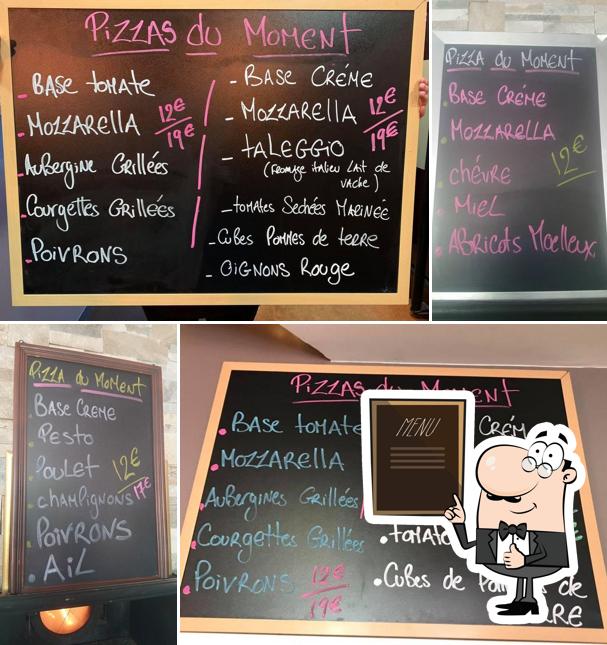 PIZZAS DU MOMENT
- BASE tomATE
- MOZZARELLA 12€
19€
- AuBERGINE GRILLÉES
- Courgettes GRILLÉES
- POIVRONS
- BASE CRÉME
- MOZZARELLA 12€
19€
- tALEGGIO
(FROMAGE ITALIEN LAIT DE
VACHE)
- tomATES SECHÉES MARINÉE
- CUBES POMMES DE tERRE
- OIGNONS ROUGE
PIZZA DU MOMENT
- BASE CRÉME
- MOZZARELLA
- CHÉVRE 12€
- MIEL
- ABRICOTS MOELLEUX
PIZZA DU MOMENT
- BASE CREME
- PESTO
- POULET 12€
- CHAMPIGNONS 17€
- POIVRONS
- AIL
PIZZAS DU MOMENT
- BASE tomATE
- MOZZARELLA
- AuBERGINES GRILLÉES
- COURGETTES GRILLÉES
- POIVRONS 12€
19€
CRÉM
MENU
- tomATO
- CUBES DE DE